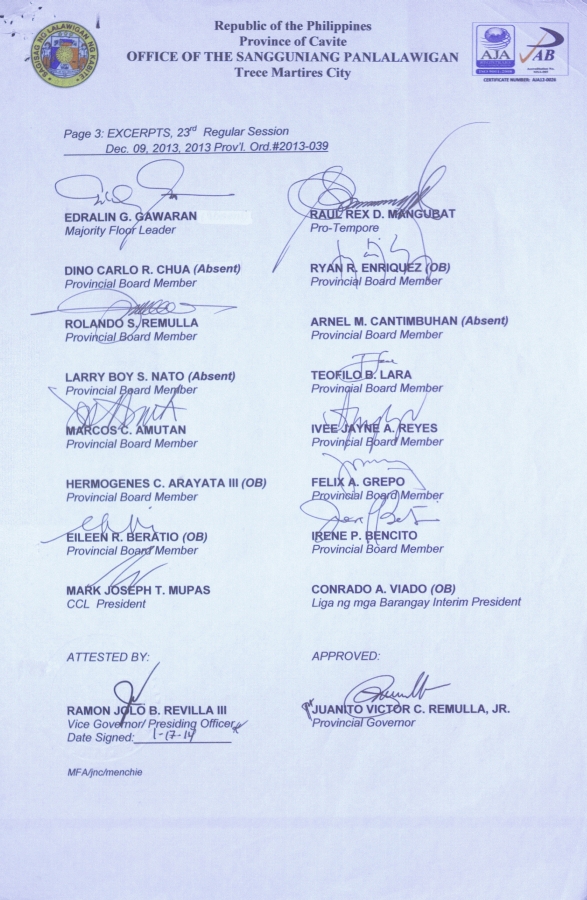 Republic of the Philippines
Province of Cavite
OFFICE OF THE SANGGUNIANG PANLALAWIGAN
Trece Martires City
AJA
AB
CERTIFICATE NUMBER: AJA12-0026
Page 3: EXCERPTS, 23rd Regular Session
Dec. 09, 2013, 2013 Prov'l. Ord.#2013-039
EDRALIN G. GAWARAN
Majority Floor Leader
RAUL REX D. MANGUBAT
Pro-Tempore
DINO CARLO R. CHUA (Absent)
Provincial Board Member
RYAN R. ENRIQUEZ (OB)
Provincial Board Member
ROLANDO S. REMULLA
Provincial Board Member
ARNEL M. CANTIMBUHAN (Absent)
Provincial Board Member
LARRY BOY S. NATO (Absent)
Provincial Board Member
TEOFILO B. LARA
Provincial Board Member
MARCOS C. AMUTAN
Provincial Board Member
IVEE JAYNE A. REYES
Provincial Board Member
HERMOGENES C. ARAYATA III (OB)
Provincial Board Member
FELIX A. GREPO
Provincial Board Member
EILEEN R. BERATIO (OB)
Provincial Board Member
IRENE P. BENCITO
Provincial Board Member
MARK JOSEPH T. MUPAS
CCL President
CONRADO A. VIADO (OB)
Liga ng mga Barangay Interim President
ATTESTED BY:
APPROVED:
RAMON JOLO B. REVILLA III
Vice Governor/ Presiding Officer
Date Signed: 1-17-14
JUANITO VICTOR C. REMULLA, JR.
Provincial Governor
MFA/jnc/menchie